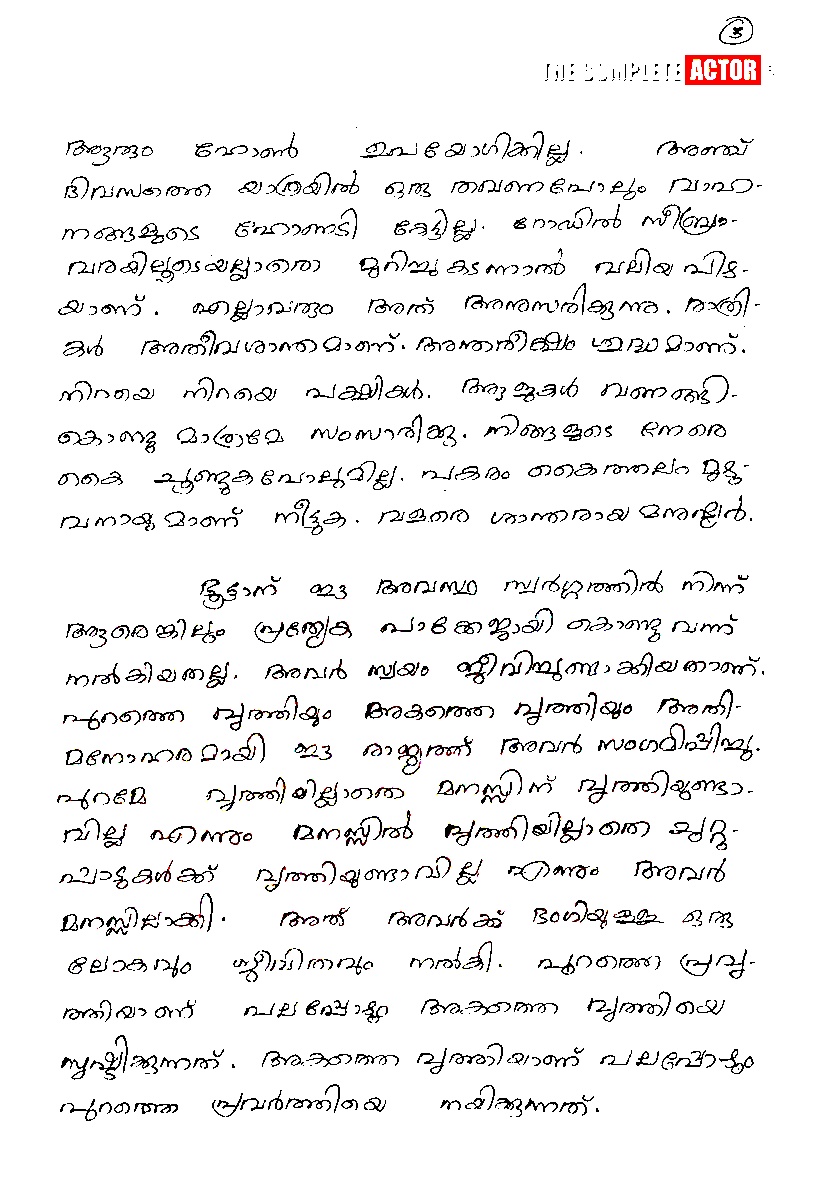 3
THE COMPLETE ACTOR
ആരും ഹോൺ ഉപയോഗിക്കില്ല. അഞ്ച്
ദിവസത്തെ യാത്രയിൽ ഒരു തവണപോലും വാഹ-
നങ്ങളുടെ ഹോണടി കേട്ടില്ല. റോഡിൽ സീബ്രാ-
വരയിലൂടെയല്ലാതെ മുറിച്ചുകടന്നാൽ വലിയ പിഴ-
യാണ്. എല്ലാവരും അത് അനുസരിക്കുന്നു. രാത്രി-
കൾ അതീവശാന്തമാണ്. അന്തരീക്ഷം ശുദ്ധമാണ്.
നിറയെ നിറയെ പക്ഷികൾ. ആളുകൾ വണങ്ങി-
കൊണ്ടു മാത്രമേ സംസാരിക്കൂ. നിങ്ങളുടെ നേരെ
കൈ ചൂണ്ടുകപോലുമില്ല. പകരം കൈത്തലം മുഴു-
വനായുമാണ് നീട്ടുക. വളരെ ശാന്തരായ മനുഷ്യർ.
ഭൂട്ടാന് ഈ അവസ്ഥ സ്വർഗ്ഗത്തിൽ നിന്ന്
ആരെങ്കിലും പ്രത്യേക പാക്കേജായി കൊണ്ടു വന്ന്
നൽകിയതല്ല. അവർ സ്വയം ജീവിച്ചുണ്ടാക്കിയതാണ്.
പുറത്തെ വൃത്തിയും അകത്തെ വൃത്തിയും അതി-
മനോഹരമായി ഈ രാജ്യത്ത് അവർ സംഗമിപ്പിച്ചു.
പുറമേ വൃത്തിയില്ലാതെ മനസ്സിന് വൃത്തിയുണ്ടാ-
വില്ല എന്നും മനസ്സിൽ വൃത്തിയില്ലാതെ ചുറ്റു-
പാടുകൾക്ക് വൃത്തിയുണ്ടാവില്ല എന്നും അവർ
മനസ്സിലാക്കി. അത് അവർക്ക് ഭംഗിയുള്ള ഒരു
ലോകവും ജീവിതവും നൽകി. പുറത്തെ പ്രവൃ-
ത്തിയാണ് പലപ്പോഴും അകത്തെ വൃത്തിയെ
സൃഷ്ടിക്കുന്നത്. അകത്തെ വൃത്തിയാണ് പലപ്പോഴും
പുറത്തെ പ്രവർത്തിയെ നയിക്കുന്നത്.